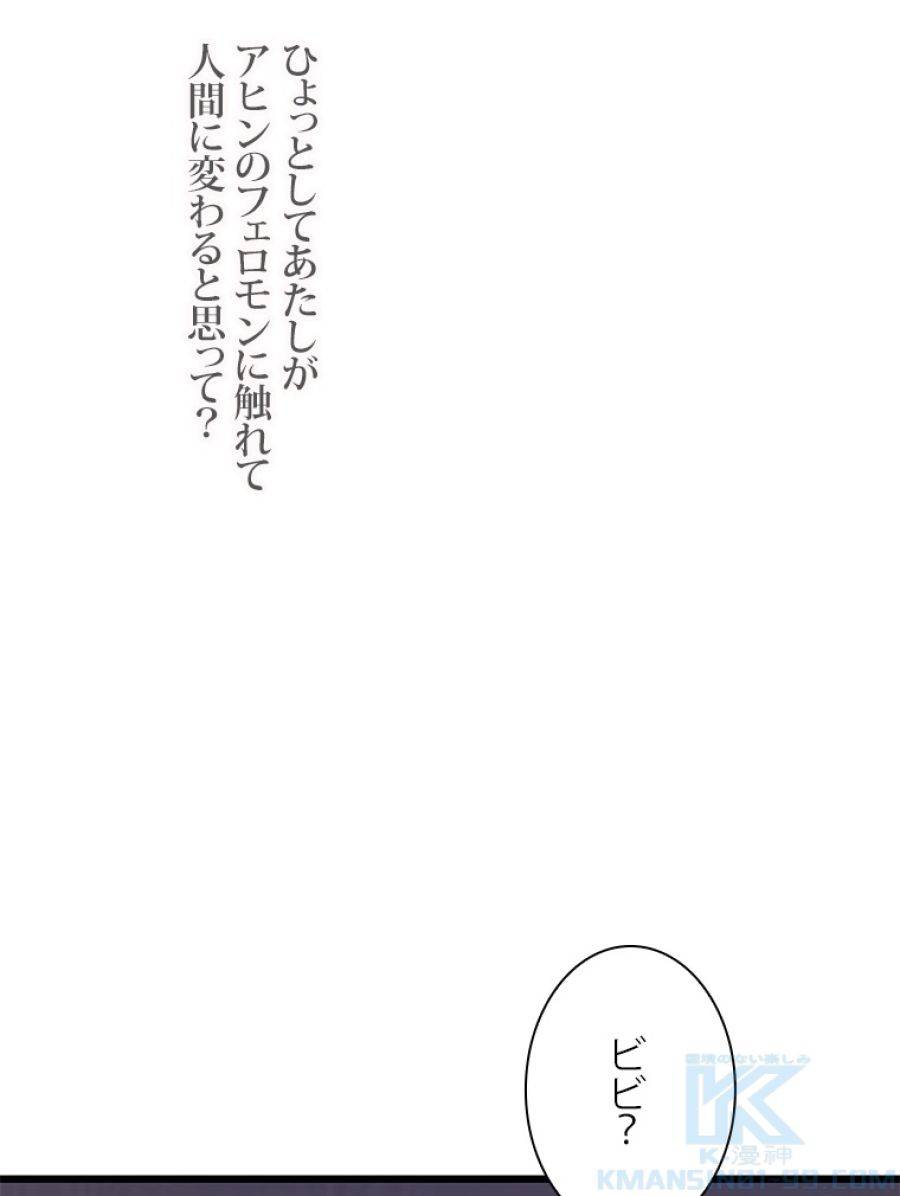 ひょっとしてあたしが
アヒンのフェロモンに触れて
人間に変わると思って？
ビビ？
K-漫神